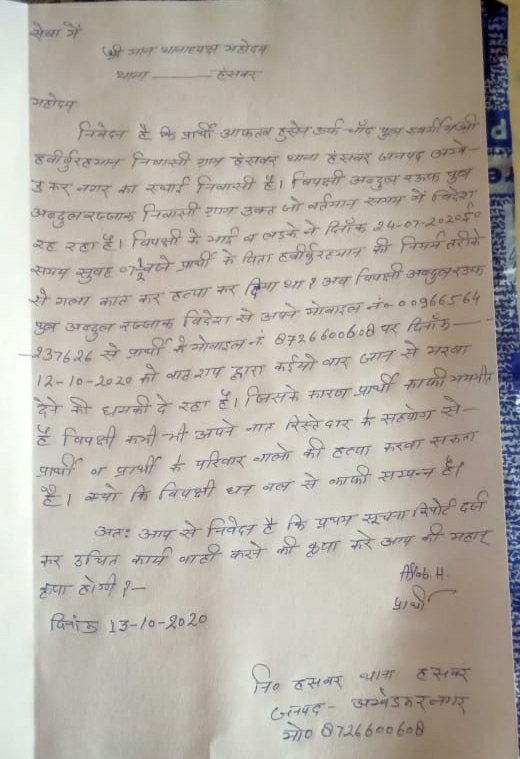 सेवा में
श्री मान थानाध्यक्ष महोदय
थाना ———— हंसवर
महोदय
निवेदन है कि प्रार्थी आफताब हुसेन उर्फ चाँद पुत्र स्वर्गीय
हबीर्बुरहमान निवासी ग्राम हंसवर थाना हंसवर जनपद अम्बे-
डकर नगर का स्थाई निवासी है। विपक्षी अब्दुल रऊफ पुत्र
अब्दुल रज्जाक निवासी ग्राम उक्त जो वर्तमान समय में विदेश
रह रहा है। विपक्षी के भाई व लडके ने दिनाँक 24-07-2020ई०
समय सुबह 07½ बजे प्रार्थी के पिता हबीर्बुरहमान की निर्मम तरीके
से गला काट कर हत्या कर दिया था? अब विपक्षी अब्दुल रऊफ
पुत्र अब्दुल रज्जाक विदेश से अपने मोबाइल नं० 00966564
237626 से प्रार्थी के मोबाइल नं 8726600608 पर दिनाँक —
12-10-2020 को वाट्सप द्वारा कईयो बार जान से मरवा
देने की धमकी दे रहा है। जिसके कारण प्रार्थी काफी भयभीत
है विपक्षी कभी भी अपने नात रिस्तेदार के सहयोग से —
प्रार्थी व प्रार्थी के परिवार वालो की हत्या करवा सकता
है। क्यो कि विपक्षी धन बल से काफी सम्पन्न है।
अतः आप से निवेदन है कि प्रथम सूचना रिपोर्ट दर्ज
कर उचित कार्य वाही करने की कृपा करे आप की महान्
कृपा होगी?—
Aftab.H.
प्रार्थी
दिनांक 13-10-2020
नि० हसवर थाना हसवर
जनपद - अम्बेडकर नगर
मो० 8726600608